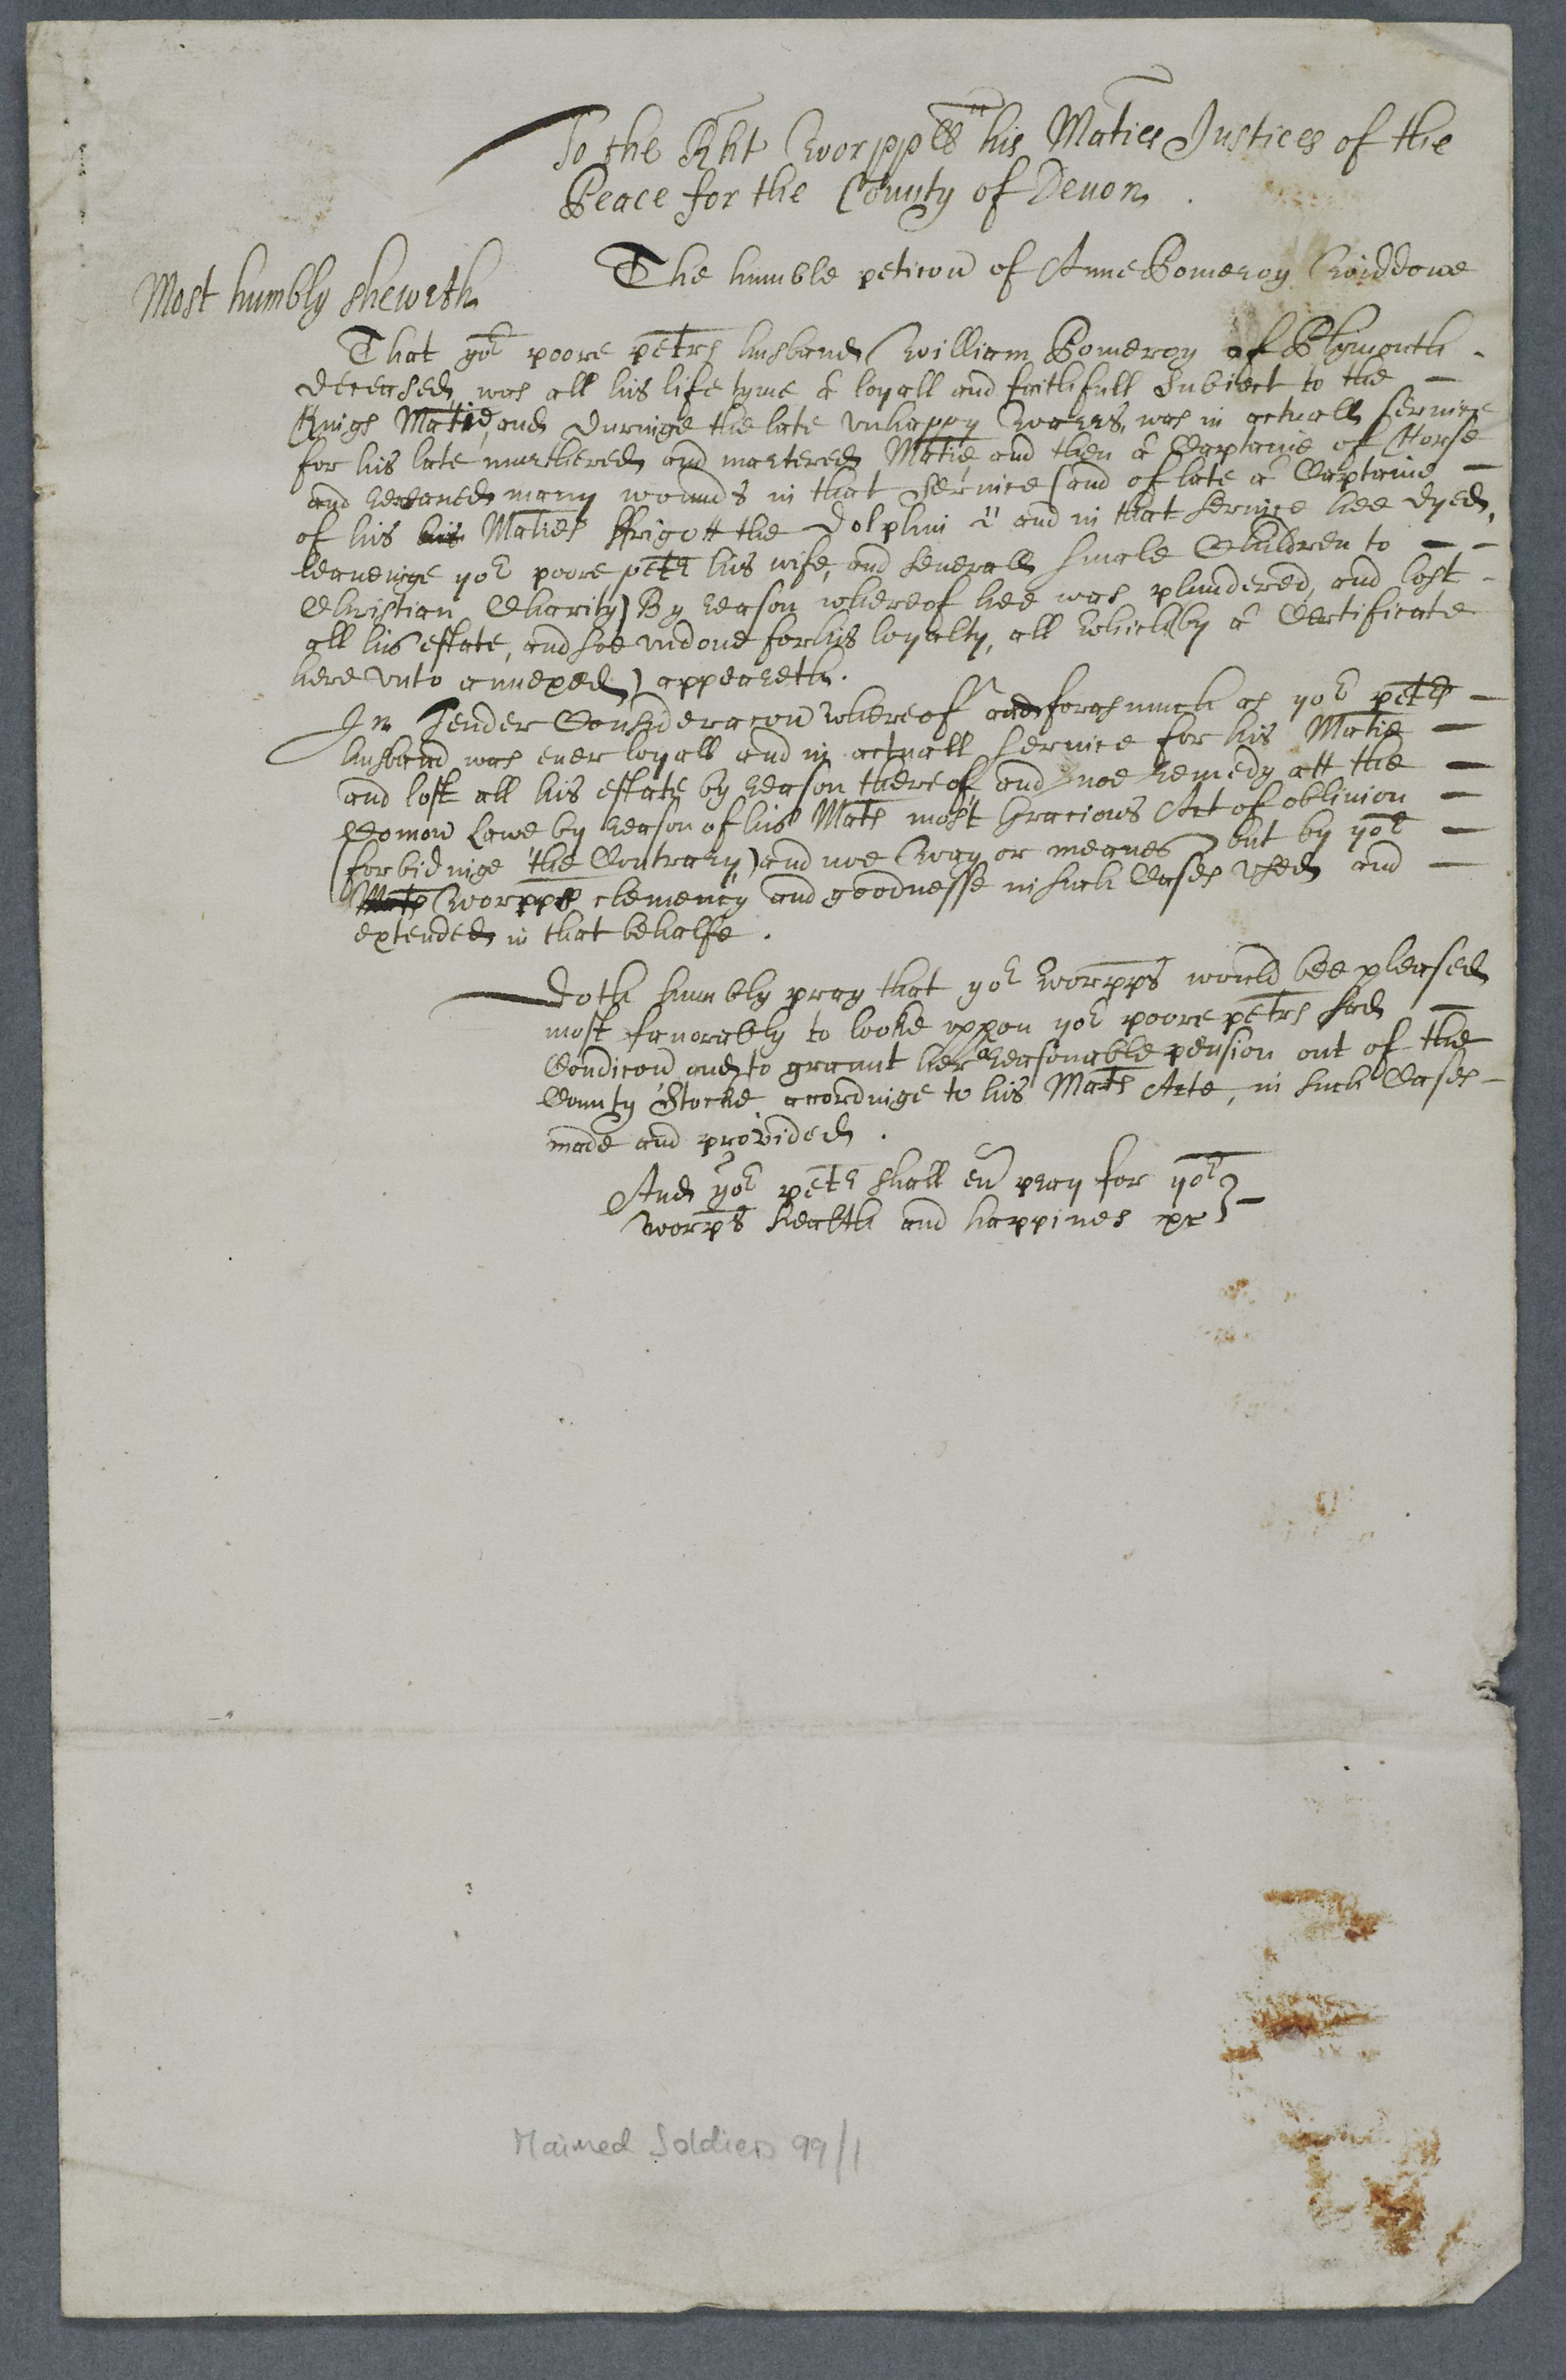 To the Rht Worppll his Maties Justices of the
Peace for the County of Deuon
The humble peticon of Anne Pomeroy Widdowe
Most humbly sheweth
That yor poore petrs husband William Pomeroy of Plymouth
deceased was all his life tyme a loyall and faithfull Subiect to the
Kings Matie, and duringe the late vnhappy Warrs, was in actuall service
for his late murthered and martered Matie and then a Captaine of Horse
and receaued many wounds in that service (and of late a Captaine
of his his Maties ffrigott the Dolphin and in that service hee dyed,
leaveinge yor poore petr his wife, and severall smale Children to
Christian Charity) By reason whereof hee was plundered, and lost
all his estate, and shee vndone for his loyalty, all which (by a Certificate
here vnto annexed) appeareth.
In Tender Consideracon whereof and forasmuch as yor petrs
husband was euer loyall and in actuall service for his Matie
and lost all his estate by reason thereof, and noe remedy att the
Comon Lawe by reason of his Mats most Gracious Act of oblivion
(forbidinge the Contrary) and noe way or meanes but by yor
Mats Worpps clemency and goodnesse in such Cases vsed and
extended in that behalfe.
Doth humbly pray that yor Worpps would bee pleased
most favorably to looke vppon yor poore petrs sad
Condicon, and to graunt her a reasonable pension out of the
County Stocke accordinge to his Mats Acte, in such Cases
made and provided.
And yor petr shall eu pray for yor
worps health and happines &c
Maimed Soldiers 99/1